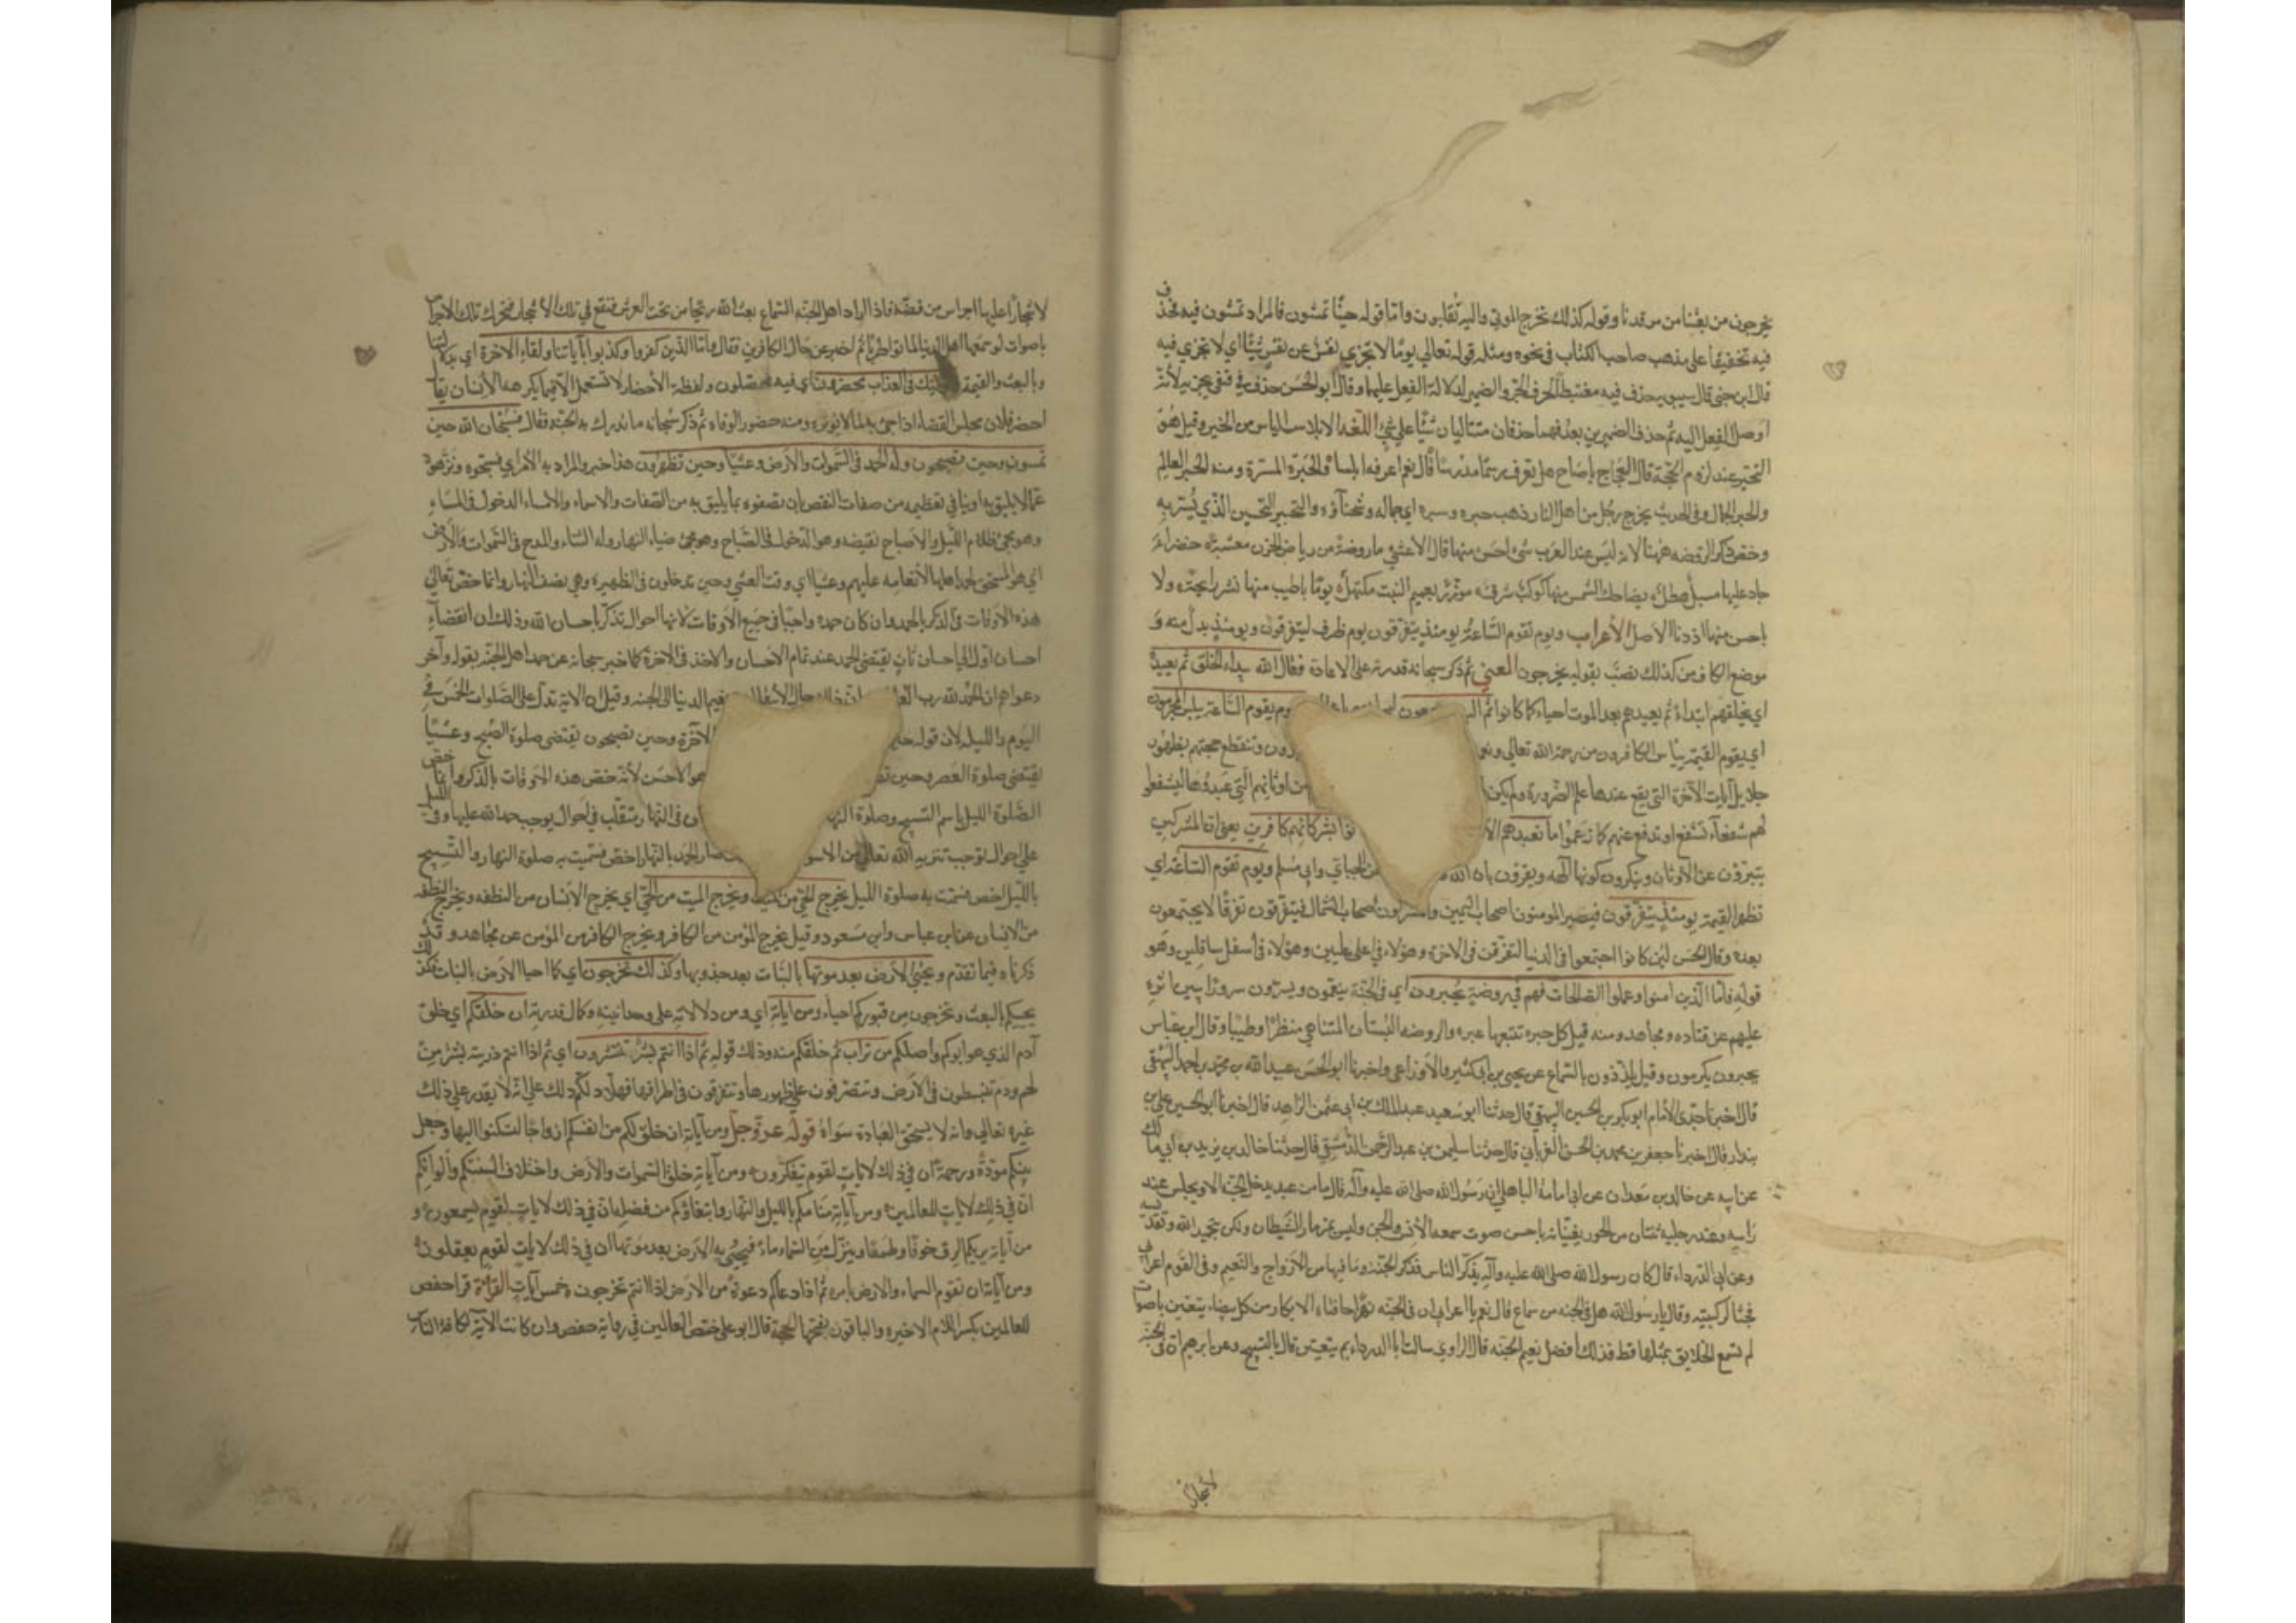 يخرجون من بعثنا من مرقدنا وقوله كذلك تخرج الموتى واليه تقلبون واما قوله حينا تمسون فالمراد تمسون فيه فحذف
فيه تخفيفا على مذهب صاحب الكتاب في نحوه ومثله قوله تعالى يوما لا تجزي نفس عن نفس شيئا اي لا تجزي فيه
قال ابن جني قال سيبويه حذف فيه معتبطا لحرف الجر والضمير لدلالة الفعل عليهما وقال ابو الحسن حذف في فبقي تجزيه لأنه
اوصل الفعل اليه ثم حذف الضمير من بعد فهما حذفان متتاليان شيئا على شيء اللغه الابلاس الياس من الخير وقيل هو
التحير عند لزوم الحجة قال العجاج يا صاح هل تعرف رسما مكرسا قال نعم اعرفه وابلسا والحبرة المسرة ومنه الحبر العالم
والحبر الجمال وفي الحديث يخرج رجل من اهل النار ذهب حبره وسبره اي جماله وسحناؤه والتحبير التحسين الذي يسر به
وخص ذكر الروضه ههنا لانه ليس عند العرب شيء احسن منها قال الاعشى ما روضة من رياض الحزن معشبة خضراء
جاد عليها مسبل هطل يضاحك الشمس منها كوكب شرق موزر بعميم النبت مكتهل يوما باطيب منها نشر رايحته ولا
باحسن منها اذ دنا الاصل الأعراب ويوم تقوم الساعة يومئذ يتفرقون يوم ظرف ليتفرقون ويومئذ بدل منه و
موضع الكاف من كذلك نصب بقوله يخرجون المعنى ثم ذكر سبحانه قدرته على الاعادة فقال الله يبداء الخلق ثم يعيده
اي يخلقهم ابتداء ثم يعيدهم بعد الموت احياء كما كانوا ثم اليه ترجعون ويوم يقوم الساعة يبلس المجرمون
اي يقوم القيمة يياس الكافرون من رحمة الله تعالى وتنقطع حجتهم بظهور
جلايل آيات الآخرة التي يقع عندها علم الضرورة ولم يكن من اوثانهم التي عبدوها ليشفعوا
لهم شفعآء تشفع او تدفع عنهم كما زعموا انا نعبدهم بشركائهم كافرين يعني ان المشركين
يتبرؤن عن الاوثان وينكرون كونها آلهه ويقرون بان الله عن الجبائي وابي مسلم ويوم تقوم الساعة اي
تظهر القيمة يومئذ يتفرقون فيصير المومنون اصحاب اليمين والمشركون اصحاب الشمال فيتفرقون تفرقا لا يجتمعون
بعده وقال الحسن لئن كانوا اجتمعوا في الدنيا لتفرقن في الاخرة هؤلاء في اعلى عليين وهؤلاء في اسفل سافلين وهو
قوله فاما الذين امنوا وعملوا الصالحات فهم في روضة يحبرون اي في الجنة ينعمون ويسرون سرورا يبين اثره
عليهم عن قتاده ومجاهد ومنه قيل كل حبره تتبعها عبره والروضه البستان المتناهي منظرا وطيبا وقال ابن عباس
يحبرون يكرمون وقيل يلذذون بالسماع عن يحيى بن ابي كثير والاوزاعي واخبرنا ابو الحسن عبيد الله بن محمد بن احمد البيهقي
قال اخبرنا جدي الامام ابو بكر بن الحسين البيهقي قال حدثنا ابو سعيد عبد الملك بن ابي عثمن الزاهد قال اخبرنا ابو الحسين علي بن
بندار قال اخبرنا جعفر بن محمد بن الحسن الفريابي قال حدثنا سليمن بن عبد الرحمن الدمشقي قال حدثنا خالد بن يزيد بن ابي مالك
عن ابيه عن خالد بن معدان عن ابي امامة الباهلي ان رسول الله صلى الله عليه وآله قال ما من عبد يدخل الجنة الا ويجلس عند
راسه وعند رجليه ثنتان من الحور يغنيانه باحسن صوت سمعه الانس والجن وليس بمزمار الشيطان ولكن بتمجيد الله وتقديسه
وعن ابي الدرداء قال كان رسول الله صلى الله عليه وآله يذكر الناس فذكر الجنة وما فيها من الازواج والنعيم وفي القوم اعرابي
فجثا لركبتيه وقال يا رسول الله هل في الجنه من سماع قال نعم يا اعرابي ان في الجنه نهرا حافتاه الابكار من كل بيضاء يتغنين باصوات
لم تسمع الخلايق بمثلها قط فذلك افضل نعيم الجنه قال الراوي سالت ابا الدرداء بم يتغنين قال بالتسبيح وعن ابرهيم ان في الجنة
لاشجارا
لاشجارا عليها اجراس من فضة فاذا اراد اهل الجنه السماع بعث الله ريحا من تحت العرش فتقع في تلك الاشجار فتحرك تلك الاجراس
باصوات لو سمعها اهل الدنيا لماتوا طربا ثم اخبر عن حال الكافرين فقال واما الذين كفروا وكذبوا بآياتنا ولقاء الاخرة اي بدلايلنا
وبالبعث والقيمة فاولئك في العذاب محضرون اي فيه محصلون ولفظة الأحضار لا تستعمل الا فيما يكرهه الأنسان يقال
احضر فلان مجلس القضاء اذا جيء به لما لا يوثره ومنه حضور الوفاه ثم ذكر سبحانه ما تدرك به الجنه فقال فسبحان الله حين
تمسون وحين تصبحون وله الحمد في السموات والأرض وعشيا وحين تظهرون هذا خبر والمراد به الأمر اي فسبحوه ونزهوه
عما لا يليق به او ينافي تعظيمه من صفات النقص بان تصفوه بما يليق به من الصفات والاسماء والامساء الدخول في المساء
وهو مجئ ظلام الليل والاصباح نقيضه وهو الدخول في الصباح وهو مجئ ضياء النهار وله الثناء والمدح في السموات والأرض
اي هو المستحق لحمد اهلها لأنعامه عليهم وعشيا اي وقت العشي وحين تدخلون في الظهيرة وهي نصف النهار وانما خص تعالى
هذه الاوقات في الذكر بالحمد وان كان حمده واجبا في جميع الاوقات لانها احوال تذكر باحسان الله وذلك ان انقضاء
احسان اول الى احسان ثان يقتضي الحمد عند تمام الاحسان والاخذ في الاخرة كما اخبر سبحانه عن حمد اهل الجنة بقوله وآخر
دعواهم ان الحمد لله رب نعيم الدنيا الى الجنه وقيل ان الاية تدل على الصلوات الخمس في
اليوم والليله لان قوله حين الآخرة وحين تصبحون يقتضي صلوة الصبح وعشيا
يقتضي صلوة العصر وحين هو الاحسن لأنه خص هذه الاوقات بالذكر وانما خص
الصلوة الليل باسم التسبيح وصلوة النهار في النهار متقلب في احوال يوجب حمد الله عليها وفي الليل
على احوال توجب تنزيه الله تعالى من الاسواء فصار الحمد بالنهار اخص فسميت به صلوة النهار والتسبيح
بالليل اخص فسمت به صلوة الليل يخرج الحي من الميت ويخرج الميت من الحي اي يخرج الأنسان من النطفه ويخرج النطفه
من الانسان عن ابن عباس وابن مسعود وقيل يخرج المؤمن من الكافر ويخرج الكافر من المؤمن عن مجاهد وقد
ذكرناه فيما تقدم ويحيي الارض بعد موتها بالنبات بعد جدوبها وكذلك تخرجون اي كما احيا الارض بالنبات كذلك
يحييكم بالبعث وتخرجون من قبوركم احياء ومن اياته اي ومن دلالاته على وحدانيته وكمال قدرته ان خلقكم اي خلق
آدم الذي هو ابوكم واصلكم من تراب ثم خلقكم منه وذلك قوله ثم اذا انتم بشر تنتشرون اي ثم اذا انتم ذريته بشر من
لحم ودم تنبسطون في الأرض وتتصرفون على ظهورها وتتفرقون في اطرافها فهلا دلكم ذلك على انه لا يقدر على ذلك
غيره تعالى وانه لا يستحق العبادة سواه قوله عز وجل ومن آياته ان خلق لكم من انفسكم ازواجا لتسكنوا اليها وجعل
بينكم مودة ورحمة ان في ذلك لايات لقوم يتفكرون ومن آياته خلق السموات والأرض واختلاف السنتكم والوانكم
ان في ذلك لايات للعالمين ومن آياته منامكم بالليل والنهار وابتغاؤكم من فضله ان في ذلك لايات لقوم يسمعون و
من آياته يريكم البرق خوفا وطمعا وينزل من السماء ماء فيحيي به الارض بعد موتها ان في ذلك لايات لقوم يعقلون
ومن آياته ان تقوم السماء والارض بامره ثم اذا دعاكم دعوة من الارض اذا انتم تخرجون خمس آيات القراءة قرا حفص
للعالمين بكسر اللام الاخيره والباقون بفتحها الحجة قال ابو علي خص العالمين في رواية حفص وان كانت الاية لكافة الناس